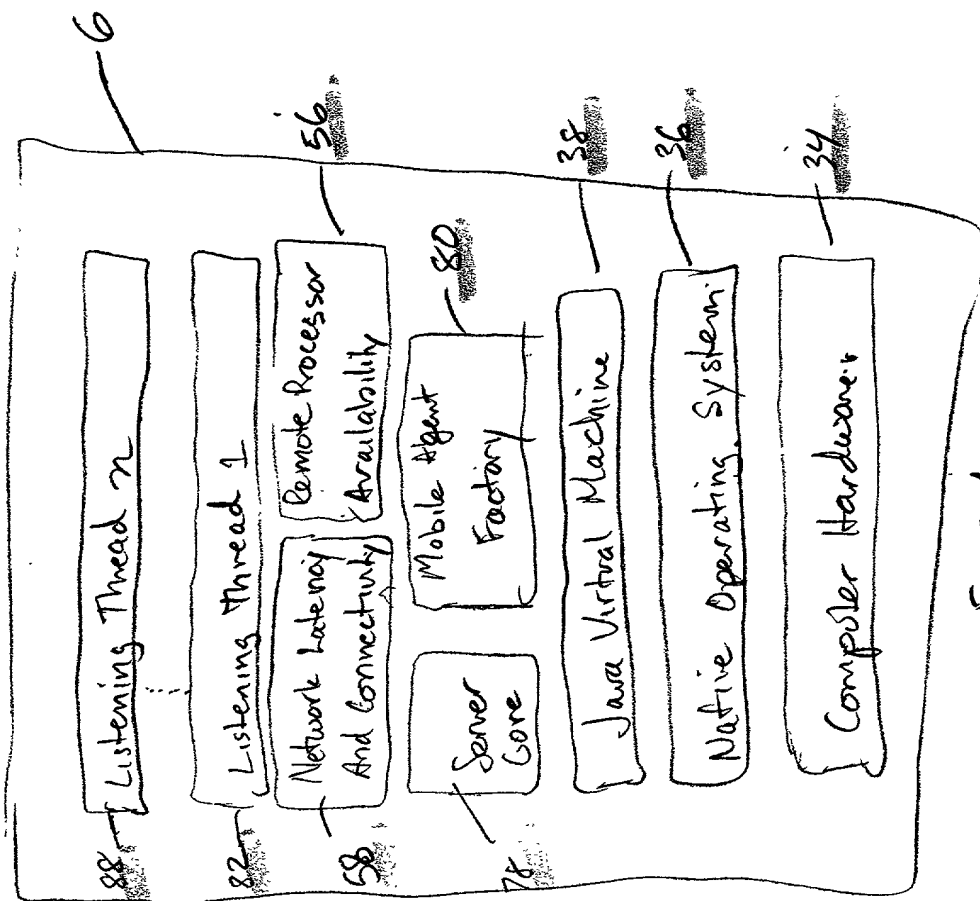 6
88
Listening Thread n
82
Listening Thread 1
58
Network Latency
And Connectivity
Remote Processor
Availability
56
78
Server
Core
Mobile Agent
Factory
80
Java Virtual Machine
38
Native Operating System
36
Computer Hardware
34